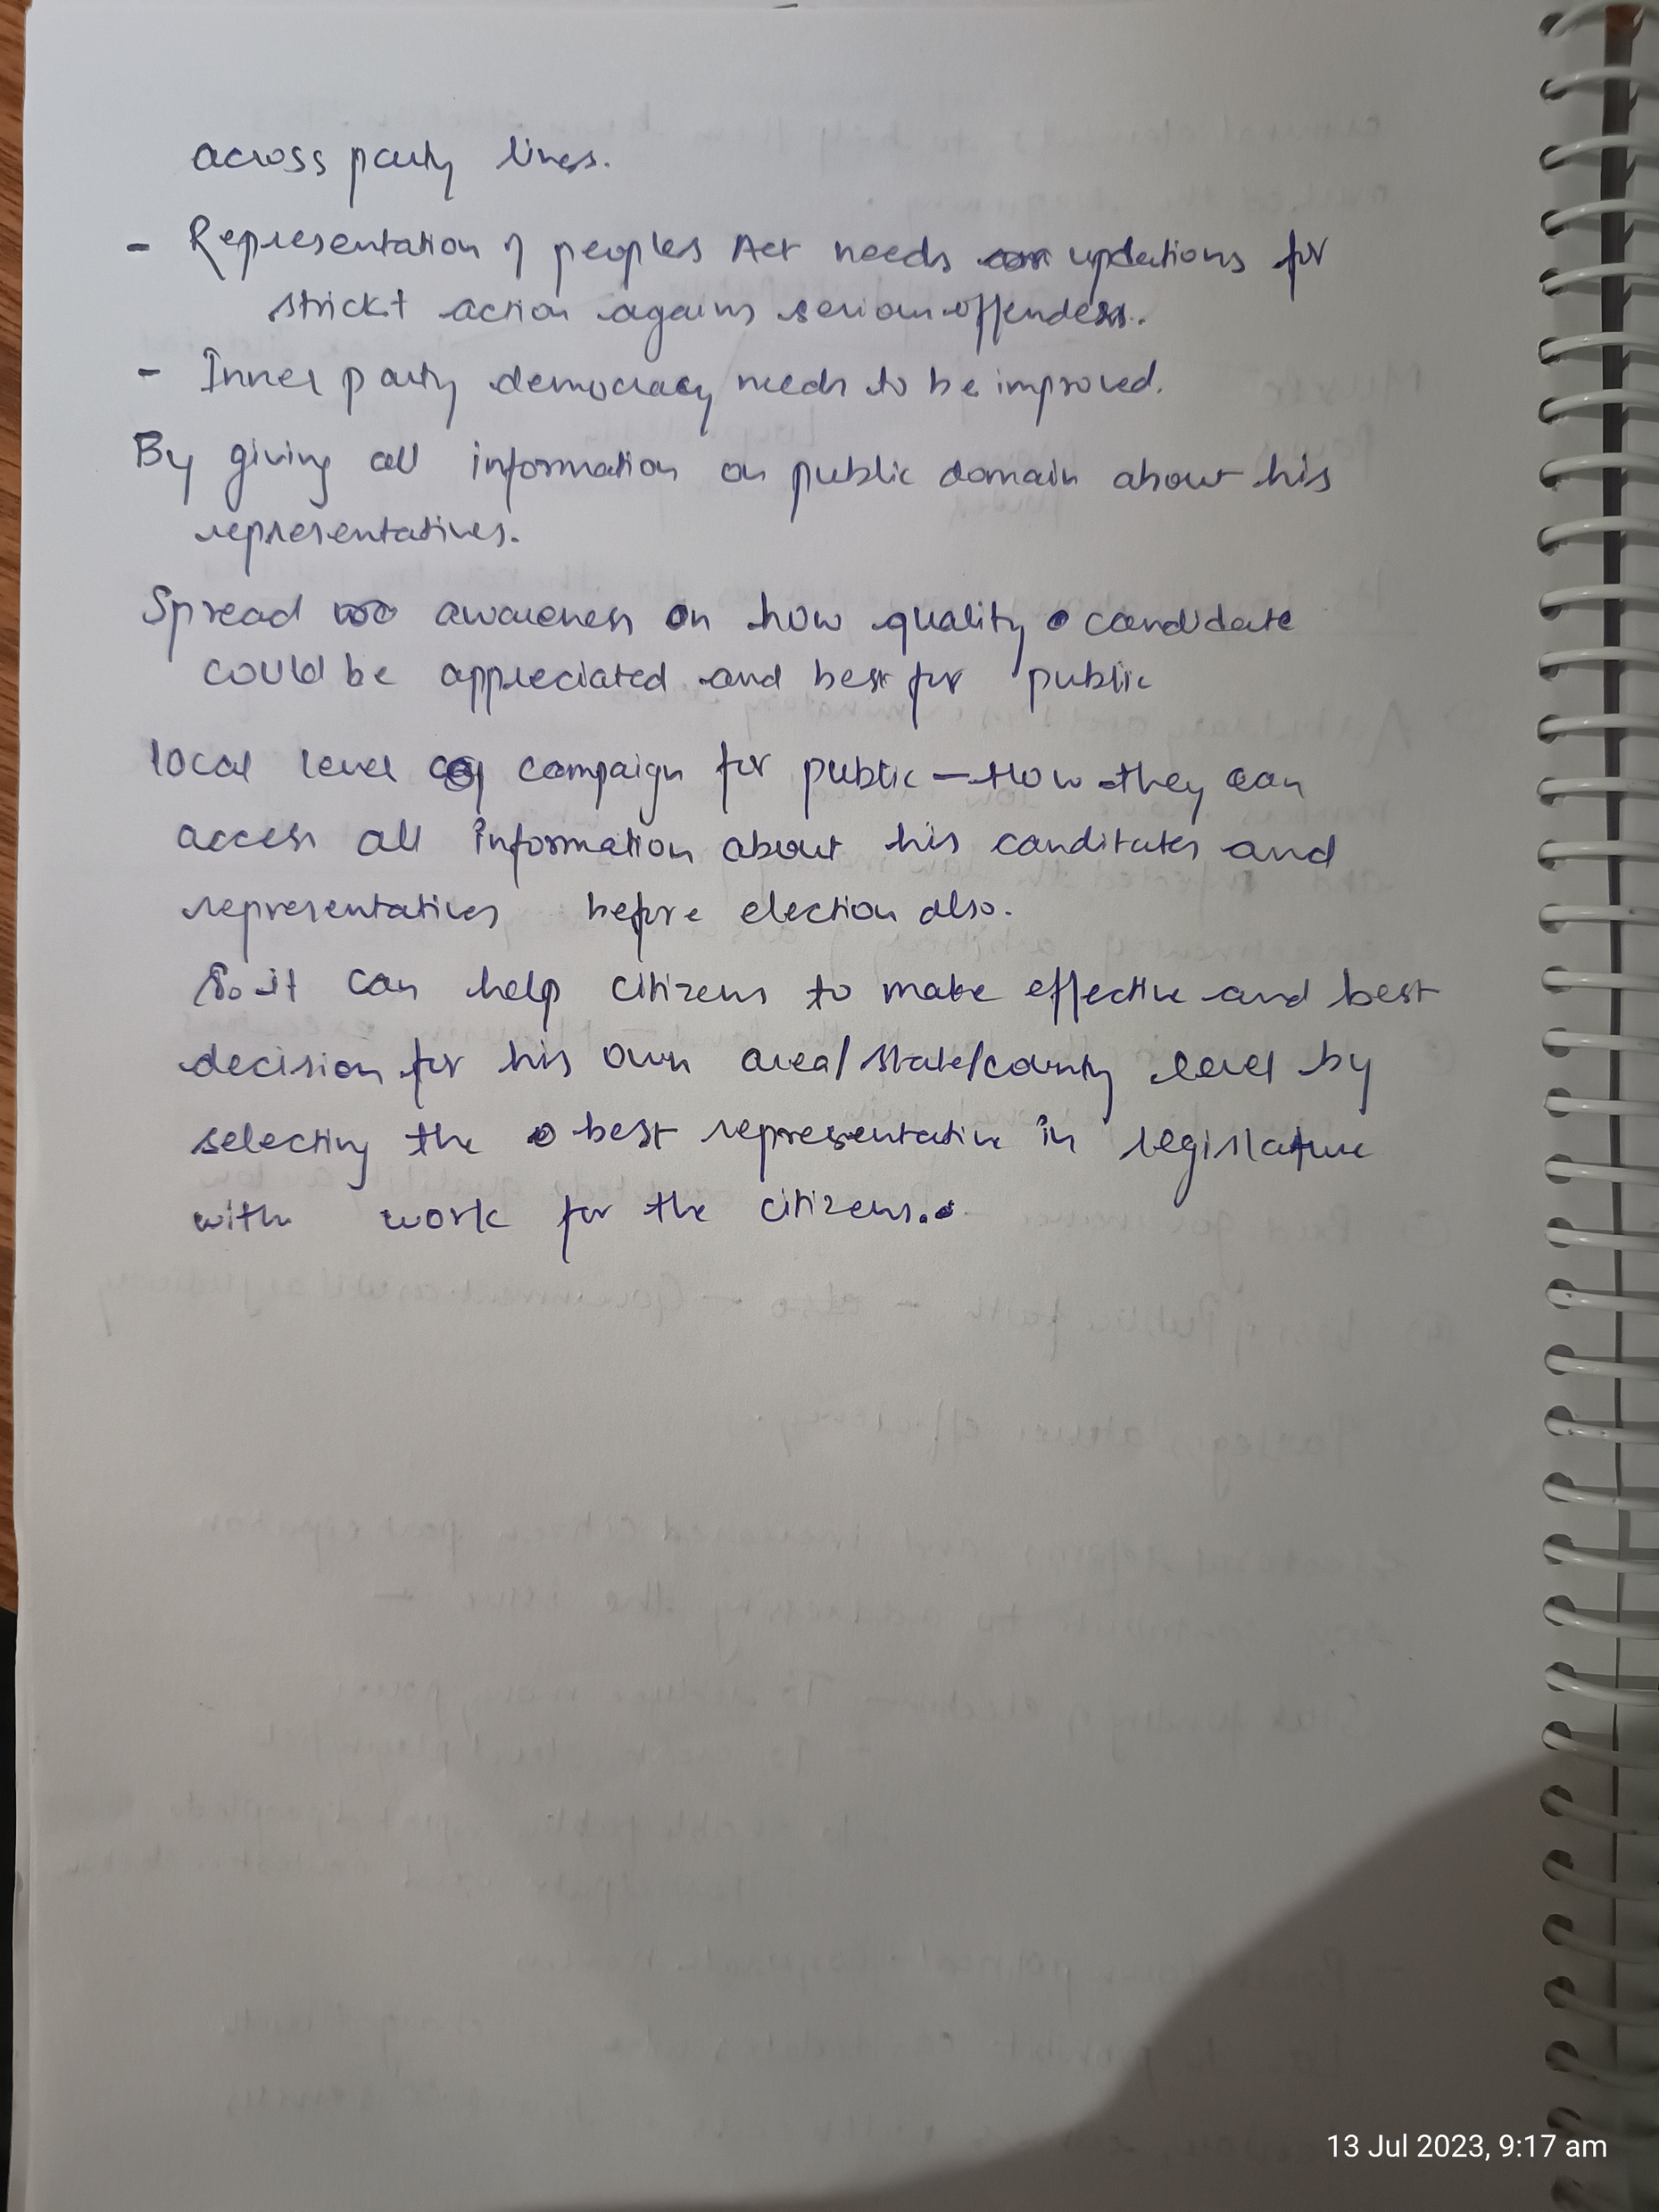 across party lines.
- Representation of peoples Act needs updations for
strickt action agains serious offendess.
- Inner party democracy needs to be improved.
By giving all information on public domain about his
representatives.
Spread awareness on how quality candidate
could be appreciated and best for public
local level campaign for public - How they can
access all information about his canditates and
representatives before election also.
So it can help citizens to make effective and best
decision for his own area/state/county level by
selecting the best representative in legislature
with work for the citizens.
13 Jul 2023, 9:17 am